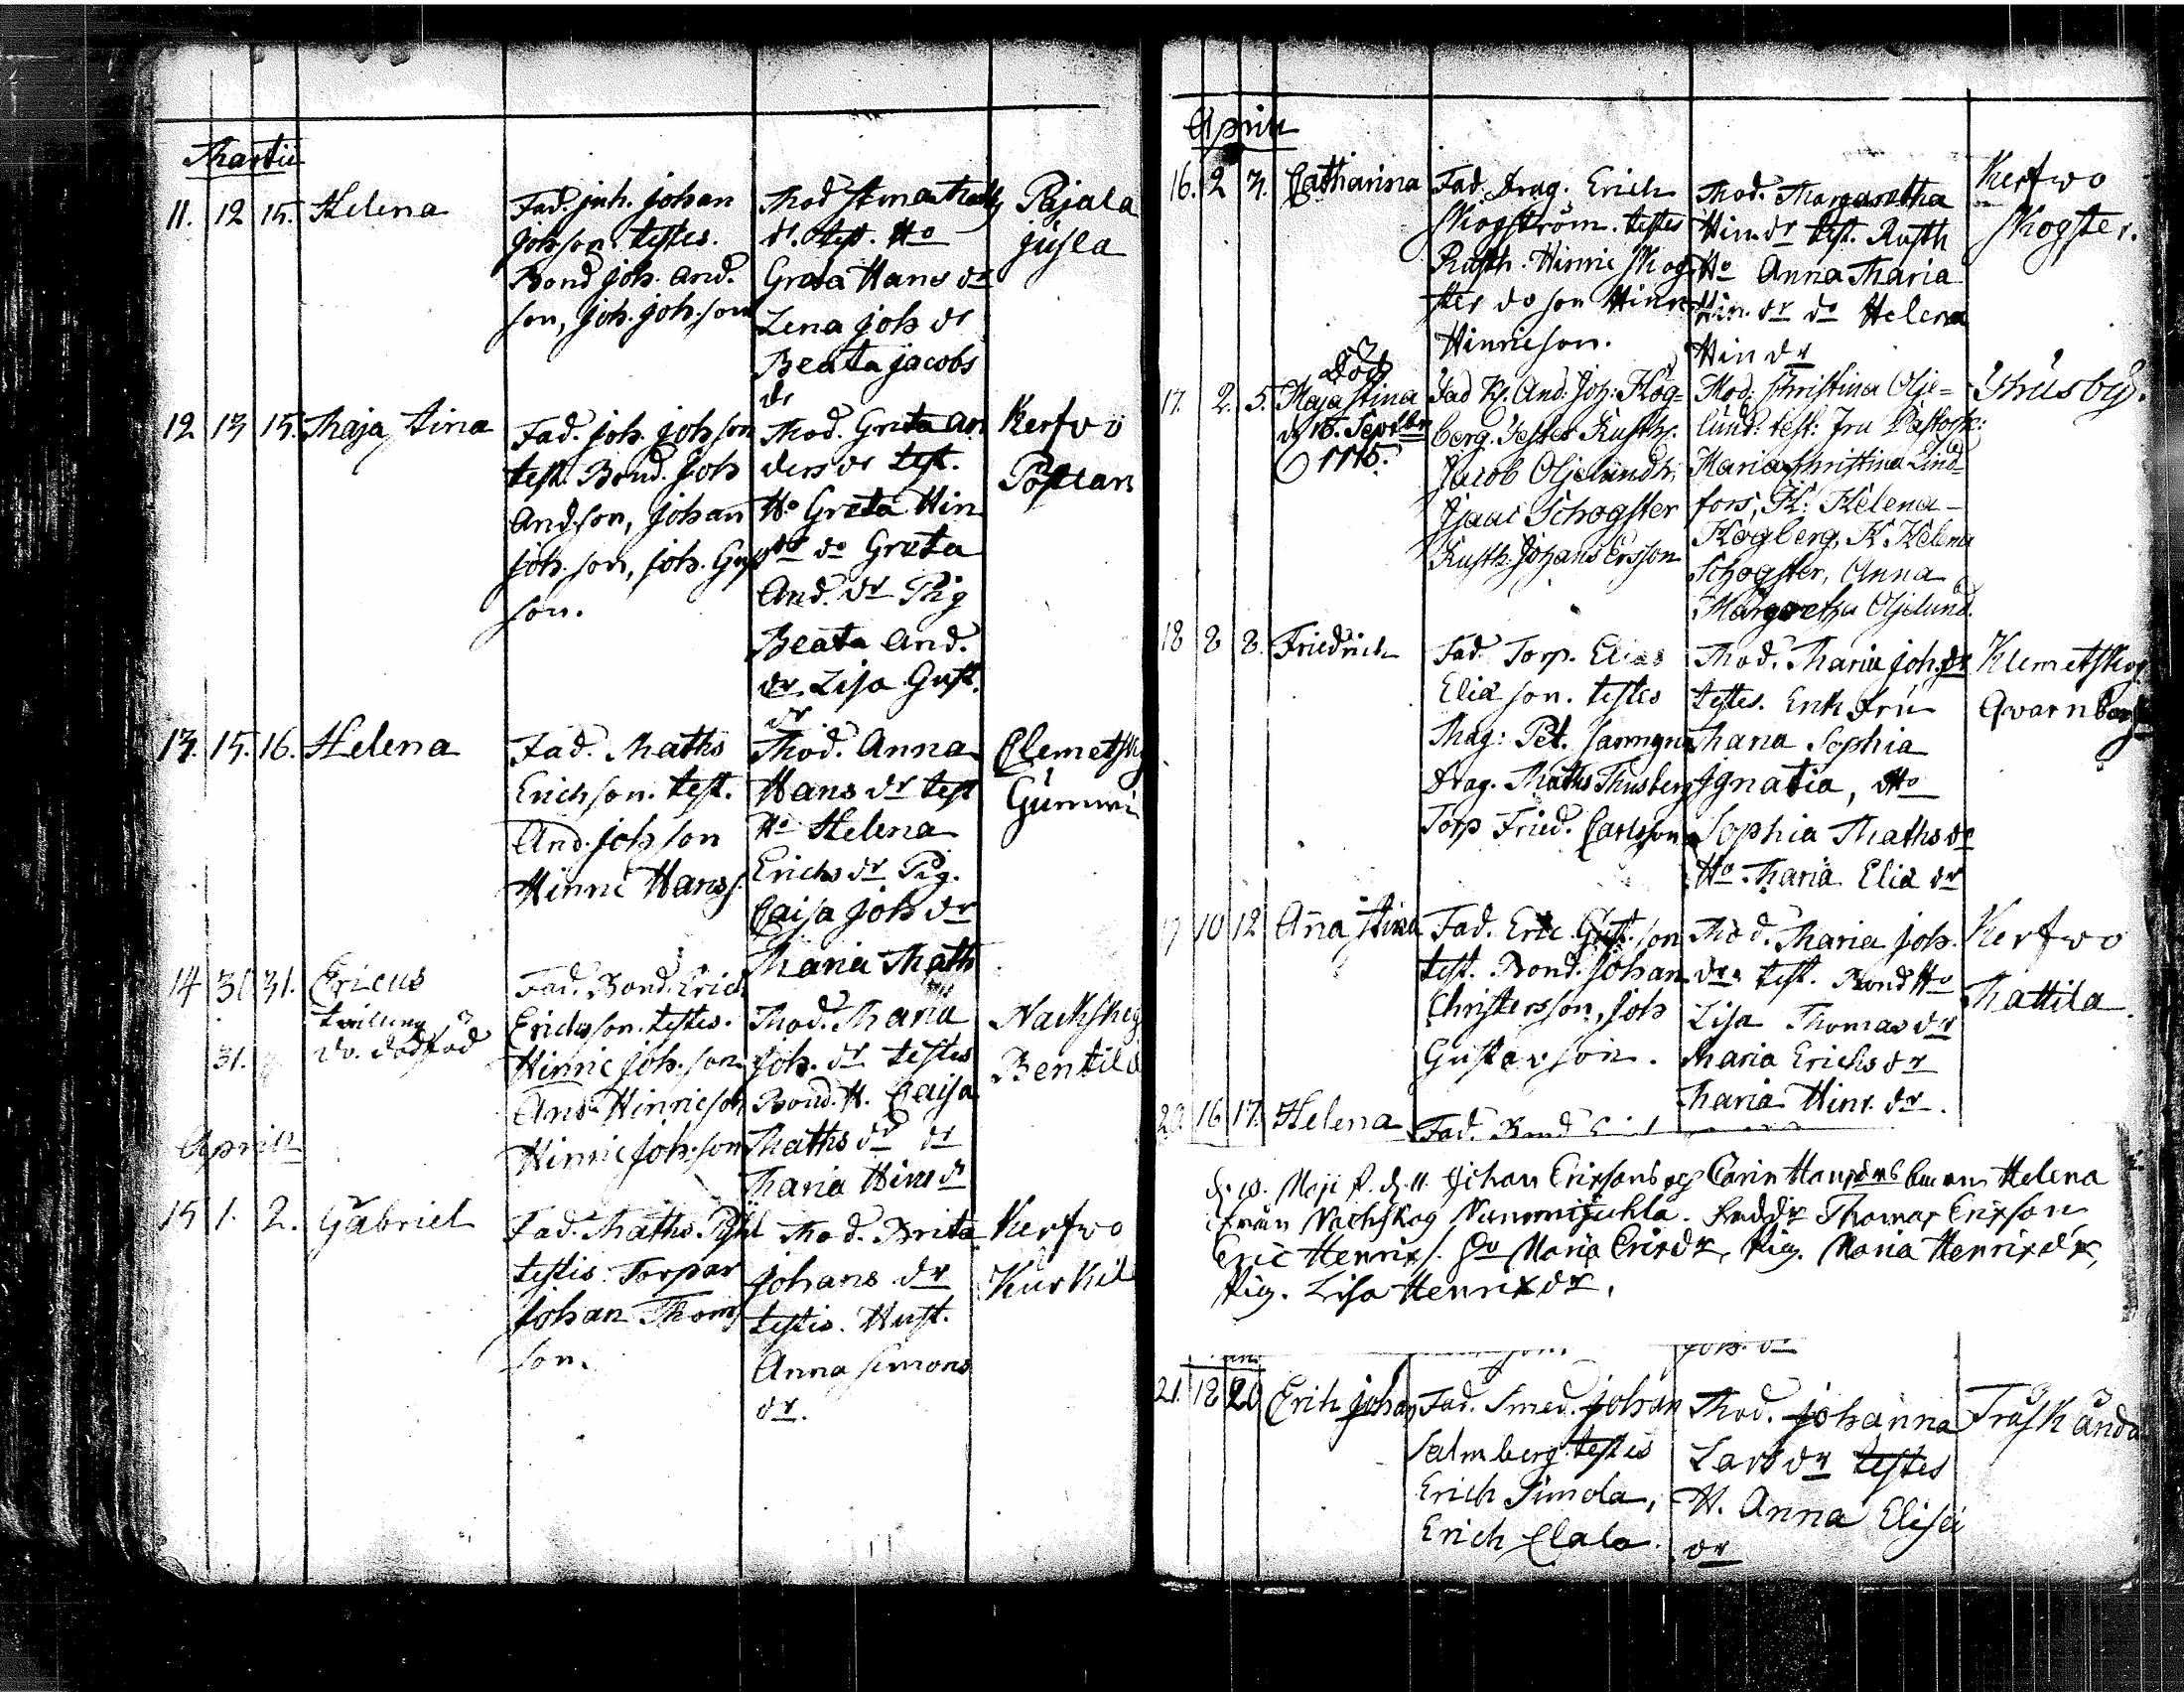 Martii
11. 12 15. Helena
Fad. inh. Johan
Johson. testes.
Bond Joh. And.
son, Joh. Joh. son
Mod Stina Math
dr. test. Ho
Greta Hans dr
Lena Joh dr
Beata Jacobs
dr
Pajala
Jusla
12 13 15. Maja Stina
Fad. Joh. Johson
test. Bond. Joh
Andson, Johan
Joh. son, Joh. Gust
son.
Mod. Greta An
ders dr test.
Ho Greta Hin
dr do Greta
And. dr Pig
Beata And.
dr Lisa Gust.
dr
Kerfvo
Postlars
13. 15. 16. Helena
Fad. Maths
Erichson. test.
And. Johson
Hinric Hanss.
Mod. Anna
Hans dr test
Ho Helena
Erichs dr Pig.
Caisa Joh dr
Maria Math
Clemetskog
Gummi
14 31 31. Ericus
twilling
31. do. dödföd
Fad. Bond. Erich
Ericksson. testes.
Hinric Joh. son
And Hinricson
Hinric Joh. son
Mod. Maria
Joh. dr testes
Bond. H. Caisa
Maths dr dr
Maria Hins dr
Nackskog
Bentila
Aprilis
15 1. 2. Gabriel
Fad. Maths
testis Torpar
Johan Thoms
son.
Mod. Brita
Johans dr
testis. Hust.
Anna Simons
dr.
Kerfvo
Kurkil
Aprilis
16. 2 3. Catharina
Fad. Drag. Erich
Skogström. testes
Rusth. Hinric Skog
ster do son Hinric
Hinricson.
Mod. Margaretha
Hin. dr test. Rusth
Ho Anna Maria
Hin. dr do Helena
Hin dr
Kerfwo
Skogster.
17. 2. 5. Maja Stina
Död
d 15. Septbr
1775.
Fad K. And: Joh: Hög-
berg. Testes Rusth.
Jacob Oljelundh,
Isaac Schogster
Rusth. Johans Ersson
Mod: Christina Olje-
lund: test: Fru Pastorsk:
Maria Christina Lind-
fors, H: Helena
Högberg, H Helena
Schogster, Anna
Margaretha Oljelund.
Thusby.
18 8 8. Friedrich
Fad. Torp. Elias
Elia son. testes
Mag: Pet.
Drag. Maths Thusberg
Torp Fried. Carlsson
Mod. Maria Joh. dr
testes. Enk Fru
Maria Sophia
Ignatia, Ho
Sophia Maths dr
Ho Maria Elia dr
Klemetskog
Qvarnbacka
19 10 12 Anna Stina
Fad. Eric Gust. son
test. Bond. Johan
Christersson, Joh
Gustavson.
Mod. Maria Joh.
dr. test. Bond Ho
Lisa Thomas dr
Maria Erichs dr
Maria Hinr. dr.
Kerfwo
Mattila
20. 16 17. Helena
Fad. Bond
d. 10. Maji f. d. 11. Johan Erixsons och Carin Hansdrs barn Helena
ifrån Nackskog Nummijuckla. Faddr Thomas Erixson
Eric Henrixs. Ho Maria Erixdr, Pig. Maria Henrixdr,
Pig. Lisa Henrixdr.
Joh. dr
21. 18 20 Erih Johan
Fad. Smed. Johan
Salmberg. testes
Erich Simola,
Erich Clala.
Mod. Johanna
Lars dr testes
H. Anna Elisei
dr
Träskända